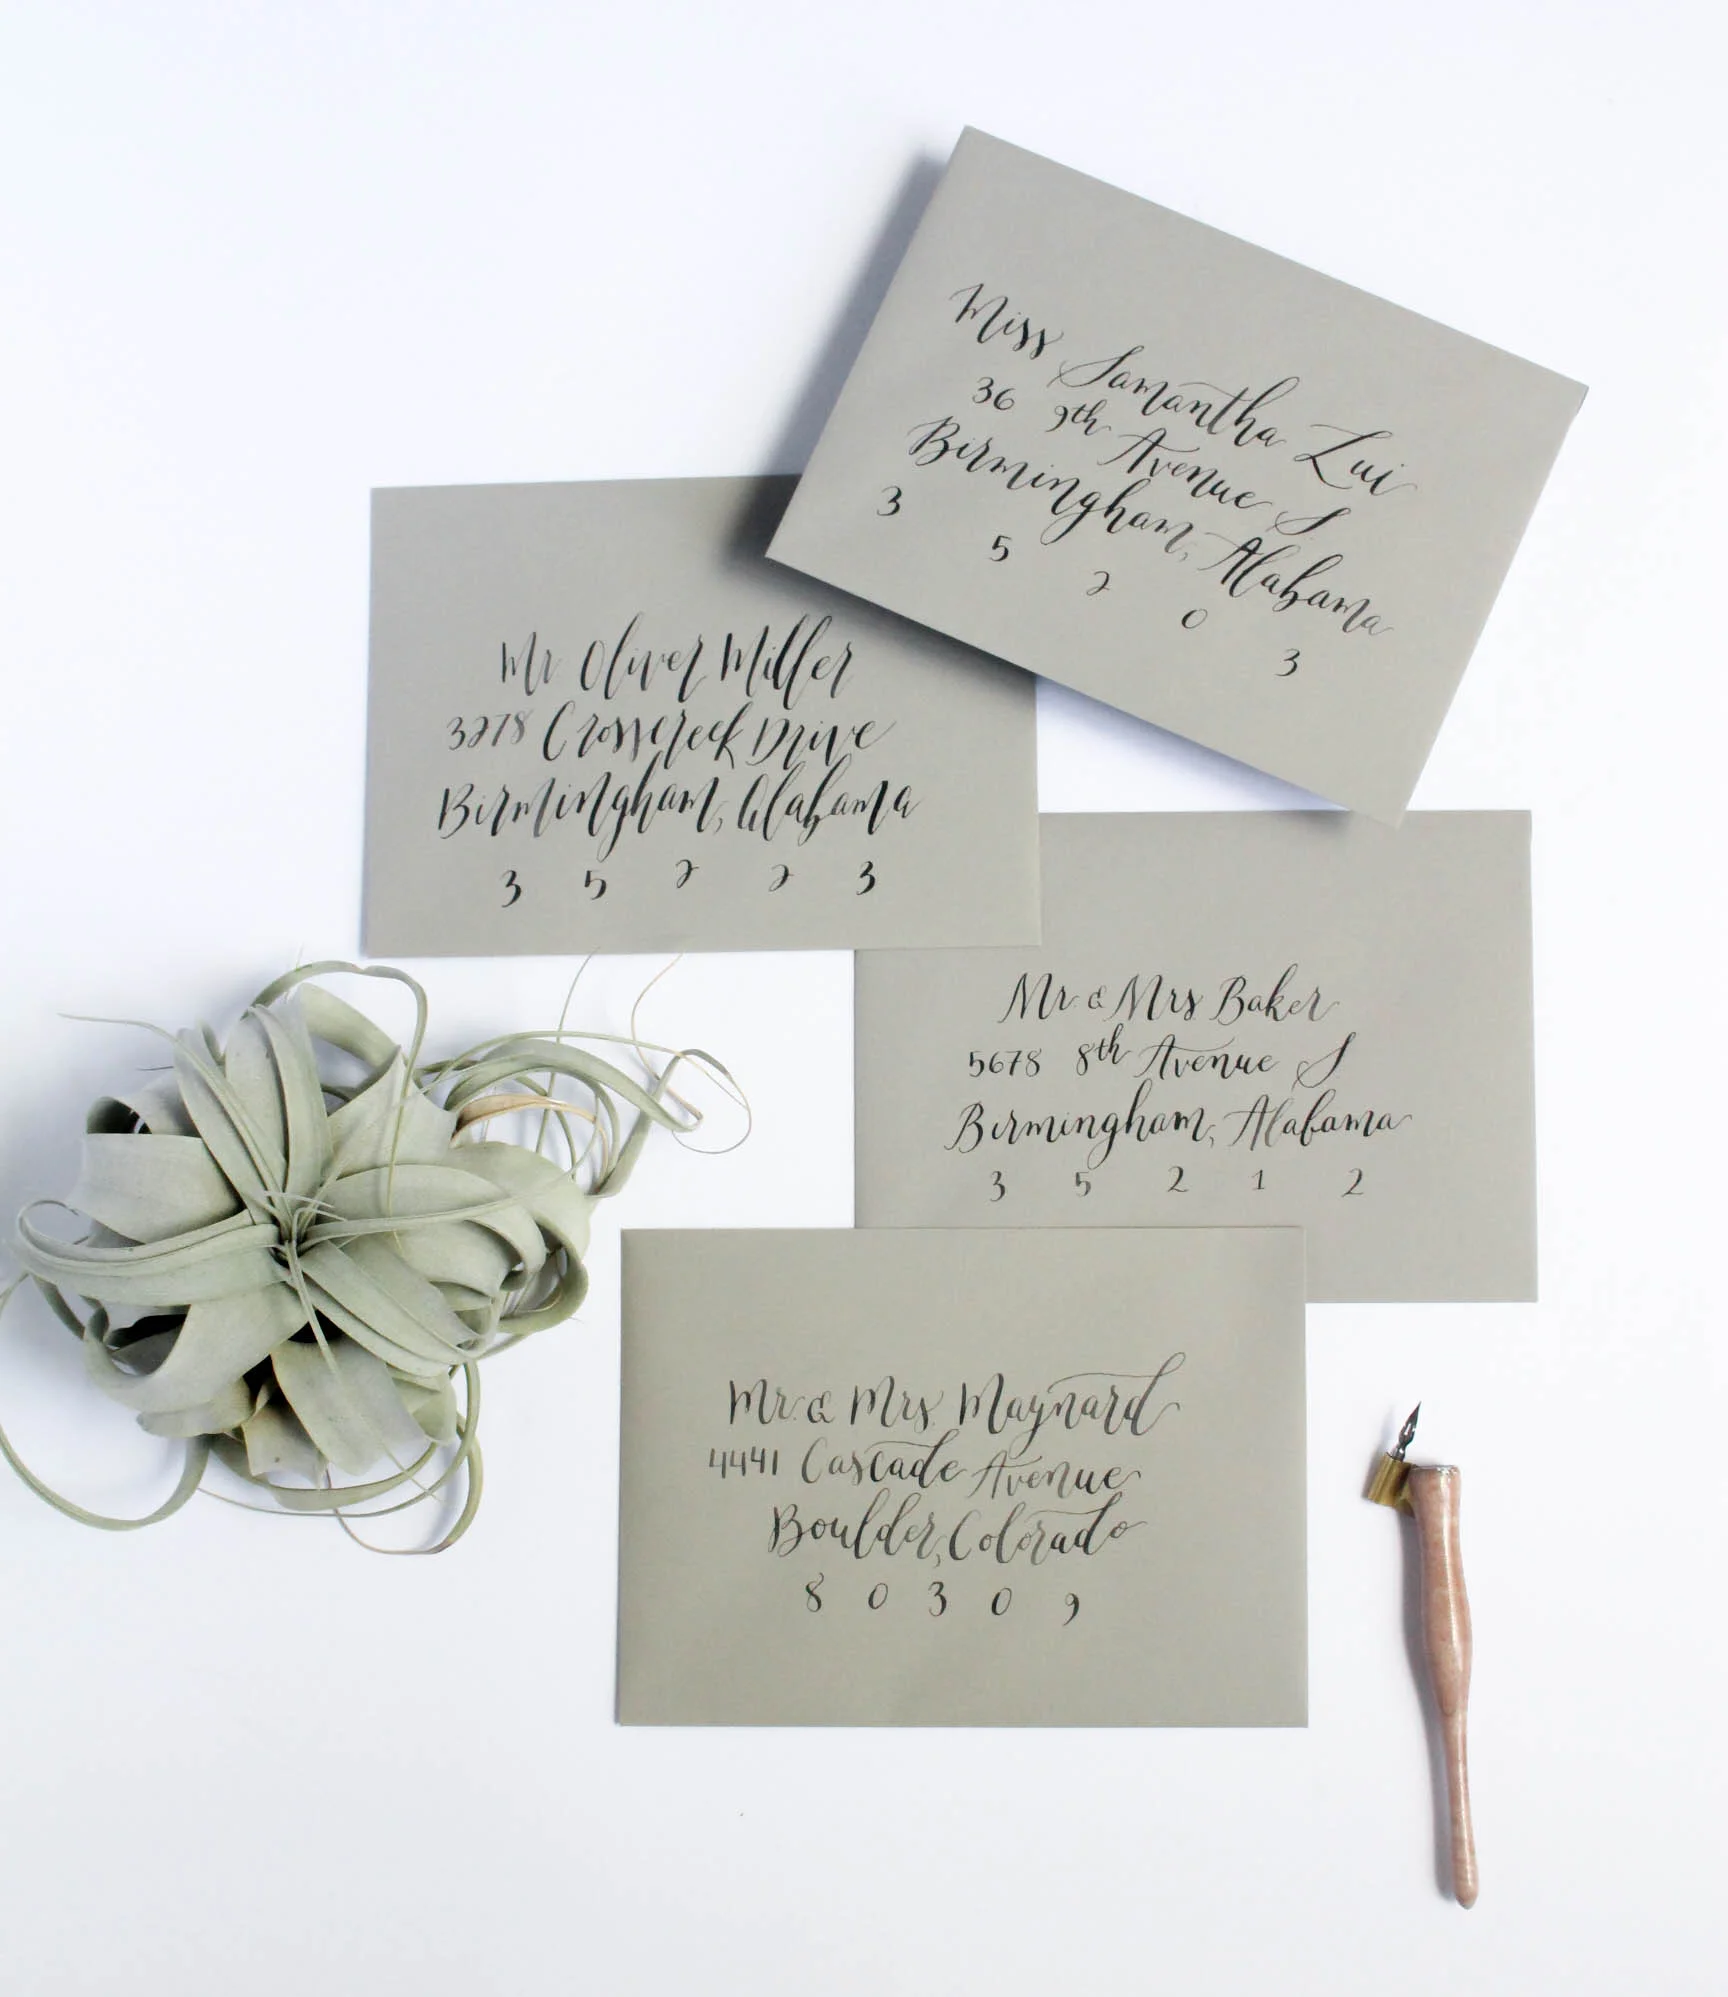 Miss Samantha Lui
36 9th Avenue S
Birmingham, Alabama
3 5 2 0 3
Mr Oliver Miller
3278 Crosscreek Drive
Birmingham, Alabama
3 5 2 2 3
Mr. & Mrs Baker
5678 8th Avenue S
Birmingham, Alabama
3 5 2 1 2
Mr. & Mrs. Maynard
4441 Cascade Avenue
Boulder, Colorado
8 0 3 0 9